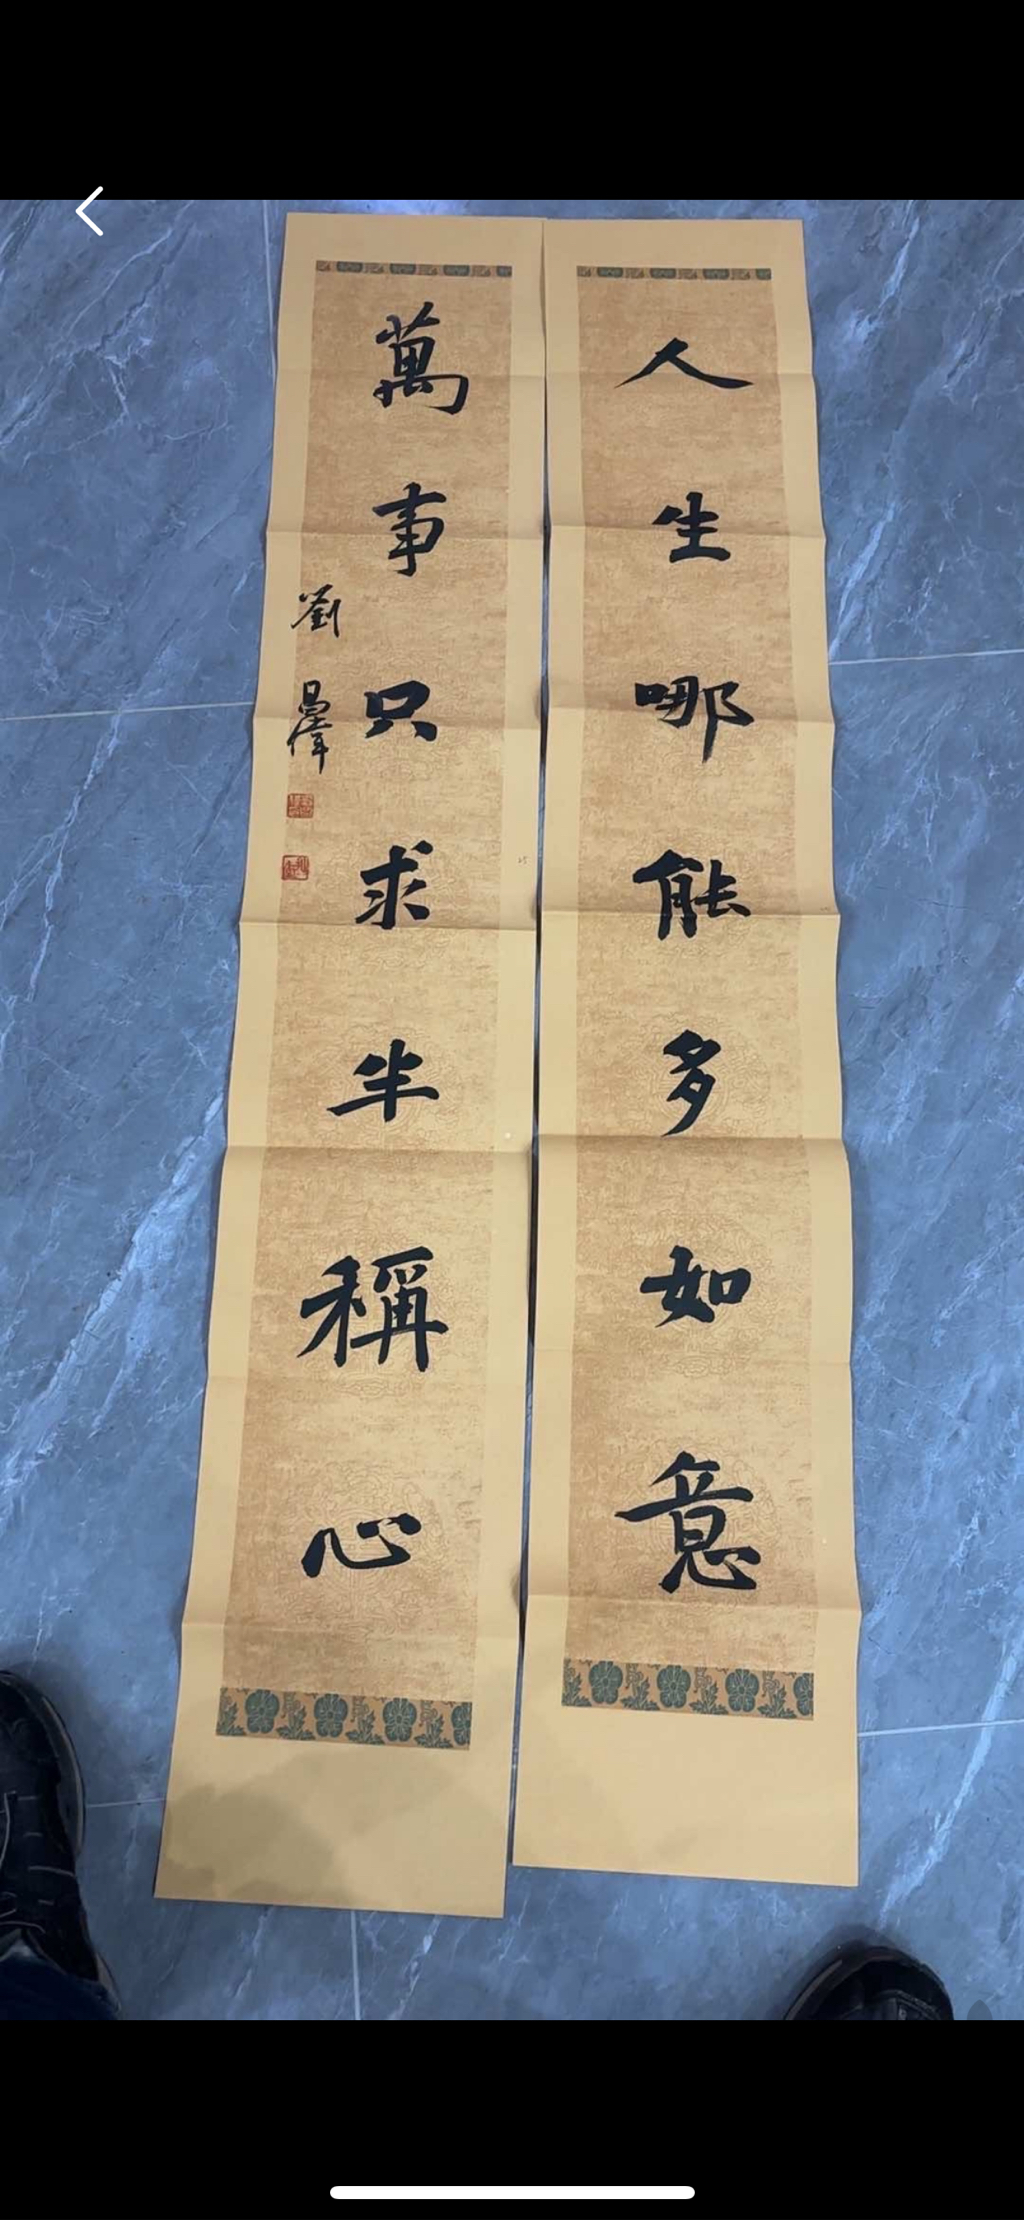 人生哪能多如意
萬事只求半稱心
劉昌偉